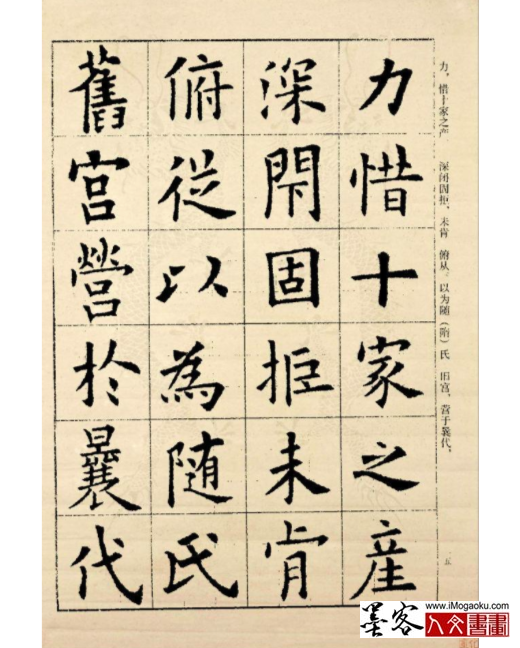 力惜十家之產
深閇固拒未肯
俯從以為隨氏
舊宮營於曩代
力，惜十家之产 深闭固拒，未肯 俯从。以为随（隋）氏 旧宫，营于曩代，
五
墨客
www.iMogaoku.com
人文書畫